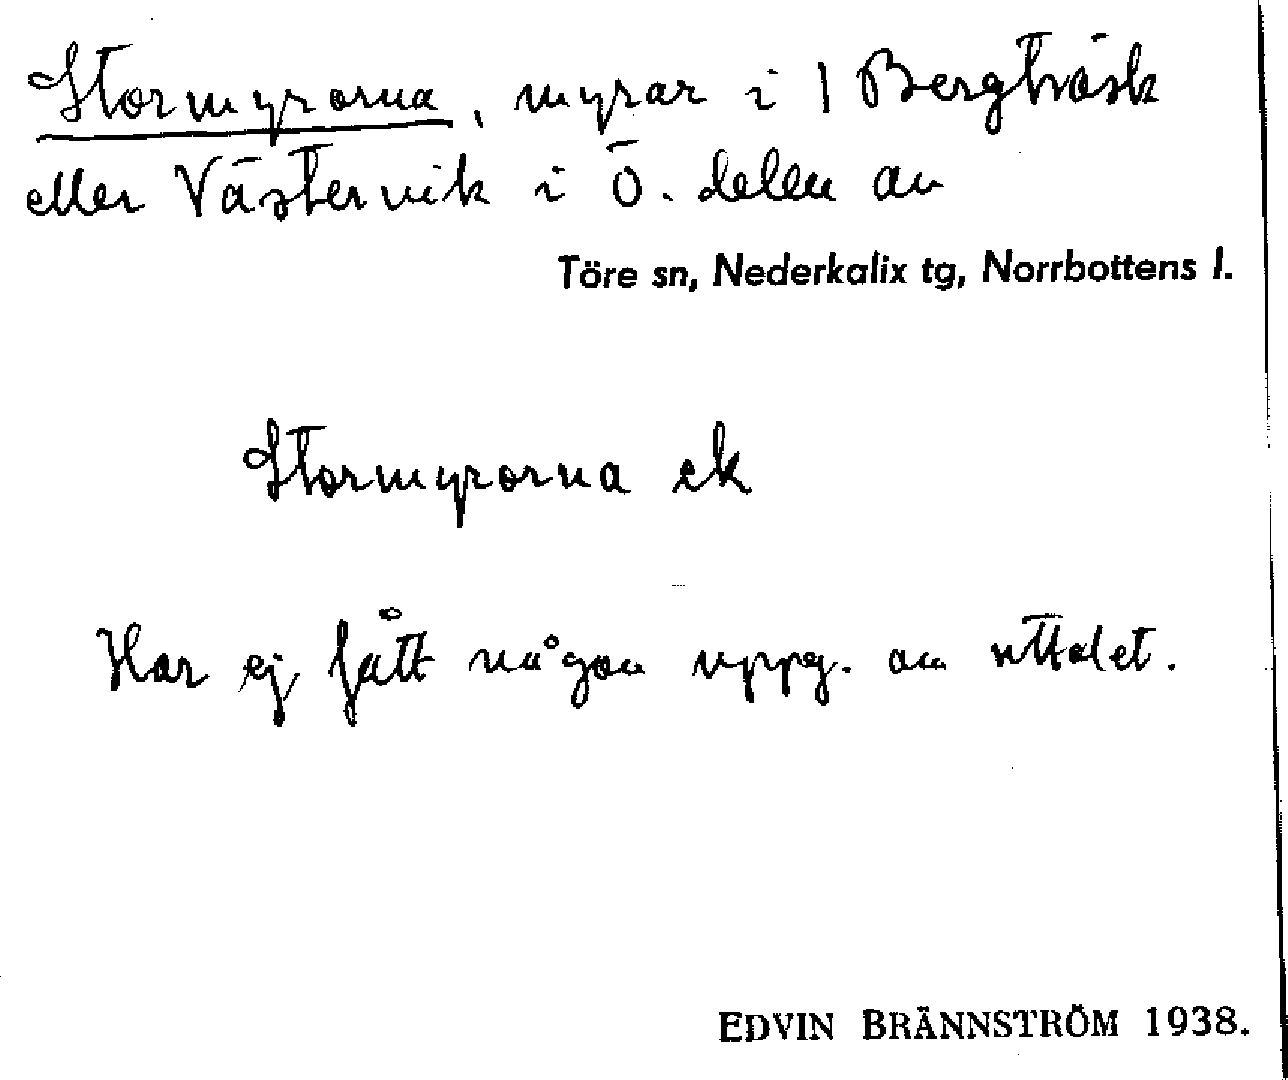 Stormyrorna, myrar i 1 Bergträsk
eller Västervik i Ö. delen av
Töre sn, Nederkalix tg, Norrbottens l.
Stormyrorna ek
Har ej fått någon uppg. om uttalet.
EDVIN BRÄNNSTRÖM 1938.